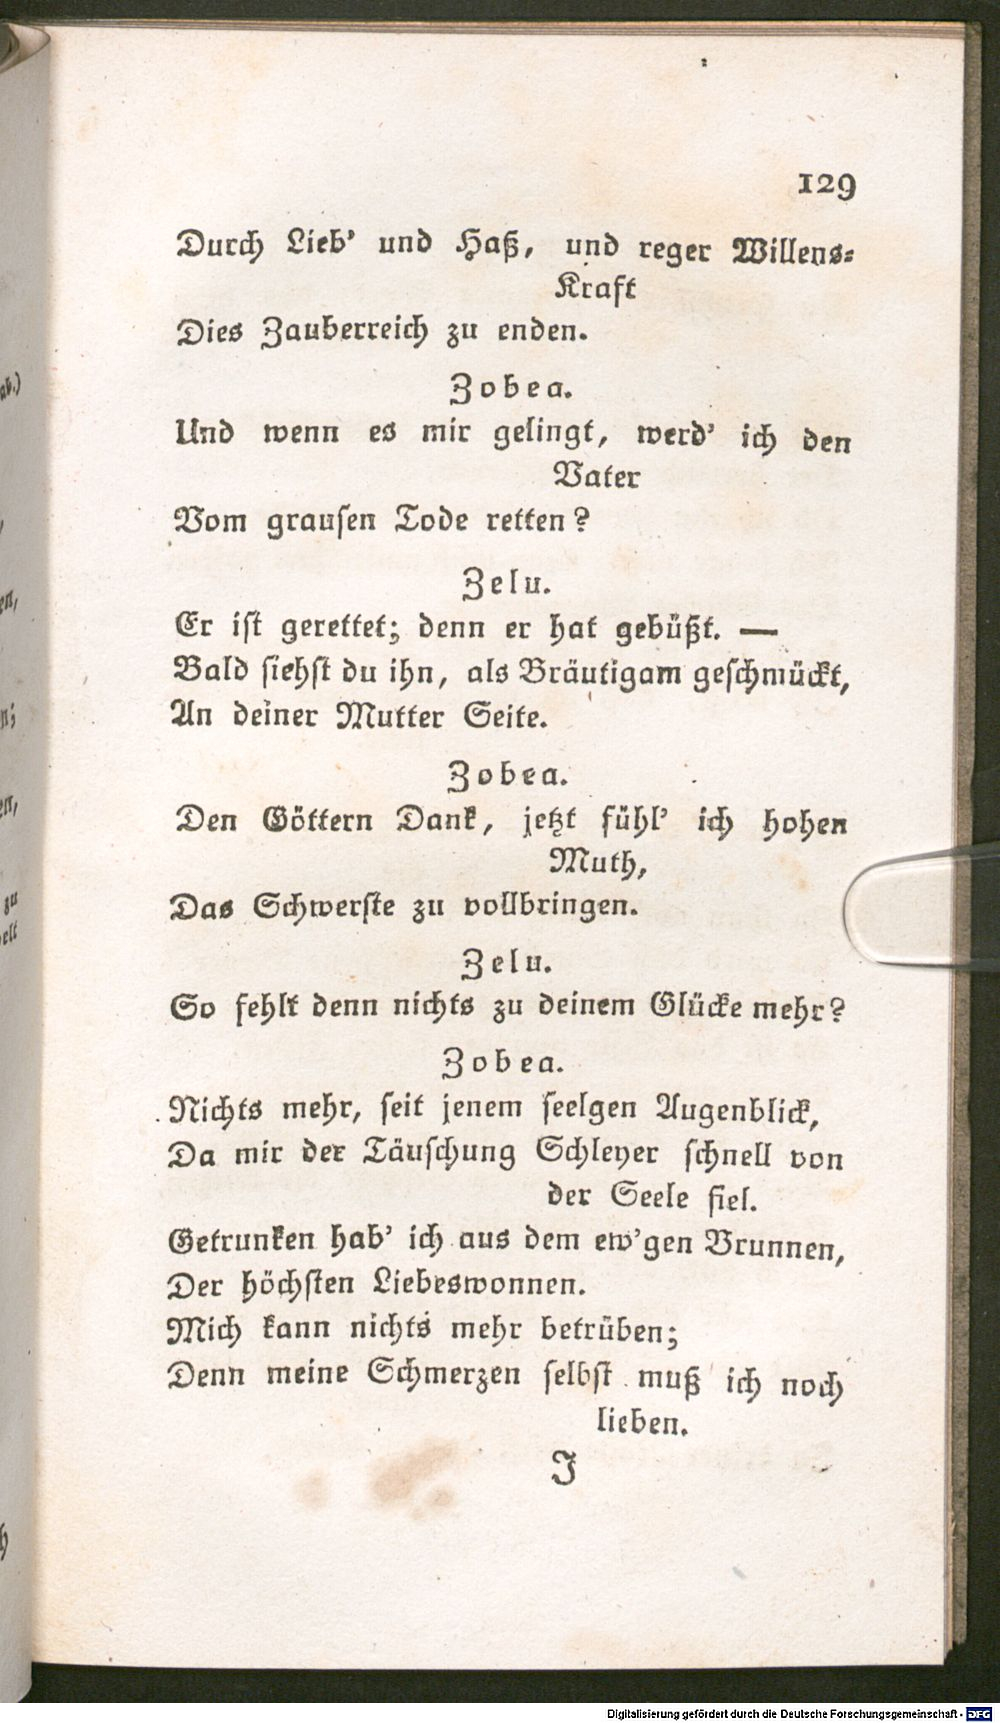 129
Durch Lieb' und Haß, und reger Willens-
Kraft
Dies Zauberreich zu enden.
Zobea.
Und wenn es mir gelingt, werd' ich den
Vater
Vom grausen Tode retten?
Zelu.
Er ist gerettet; denn er hat gebüßt. —
Bald siehst du ihn, als Bräutigam geschmückt,
An deiner Mutter Seite.
Zobea.
Den Göttern Dank, jetzt fühl' ich hohen
Muth,
Das Schwerste zu vollbringen.
Zelu.
So fehlt denn nichts zu deinem Glücke mehr?
Zobea.
Nichts mehr, seit jenem seelgen Augenblick,
Da mir der Täuschung Schleyer schnell von
der Seele fiel.
Getrunken hab' ich aus dem ew'gen Brunnen,
Der höchsten Liebeswonnen.
Mich kann nichts mehr betrüben;
Denn meine Schmerzen selbst muß ich noch
lieben.
J
Digitalisierung gefördert durch die Deutsche Forschungsgemeinschaft - DFG